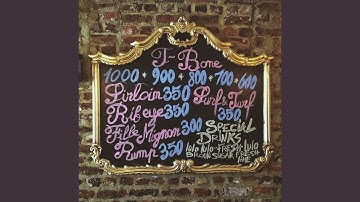 T-Bone
1000 + 900 + 800 + 700 - 600
Sirloin 350
Rib eye 350
Fille Mignon 300
Rump 350
Surf & Turf
350
SPECIAL
DRINKS
lulo lulo + FRESH lulo
BROWN SUGAR FRESH